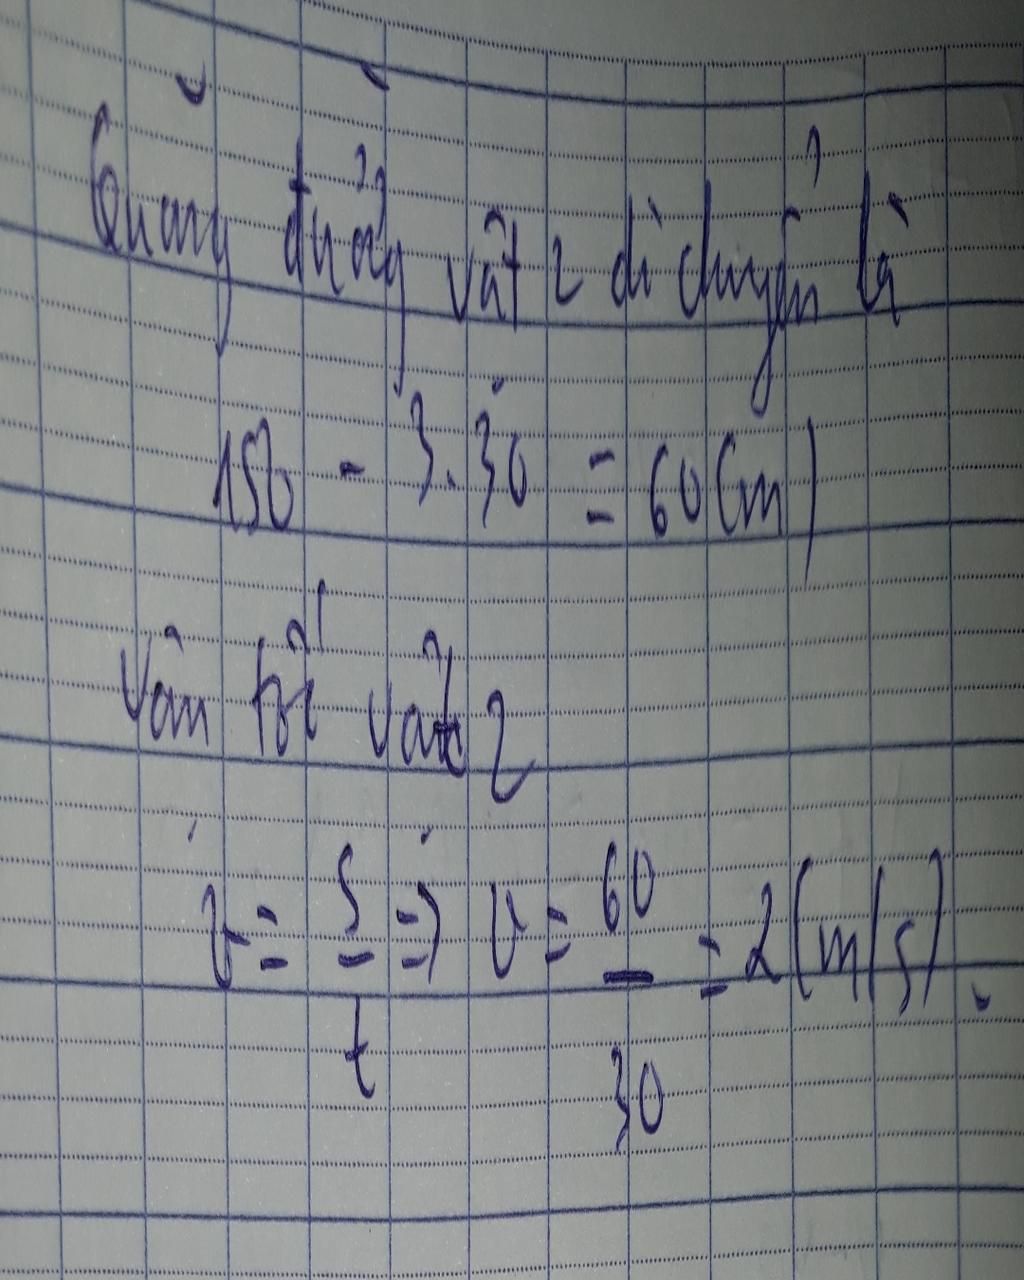 Quãng đường vật 2 di chuyển là
150 - 3.30 = 60 (m)
Vận tốc vật 2
v = s/t => v = 60/30 = 2 (m/s).